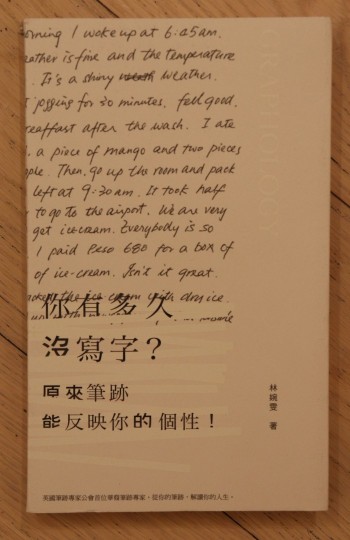 orning I woke up at 6:45am.
eather is fine and the temperature
. It's a shiny weather.
t jogging for 30 minutes. feel good.
reakfast after the wash. I ate
. a piece of mango and two pieces
ple. Then, go up the room and pack
left at 9:30am. It took half
to go to the airport. We are very
get icecream. Everybody is so
I paid Peso 680 for a box of
of ice-cream. Isn't it great.
the ice cream with dry ice.
你有多久
沒寫字？
原來筆跡
能反映你的個性！
林婉雯 著
英國筆跡專家公會首位華裔筆跡專家，從你的筆跡，解讀你的人生。